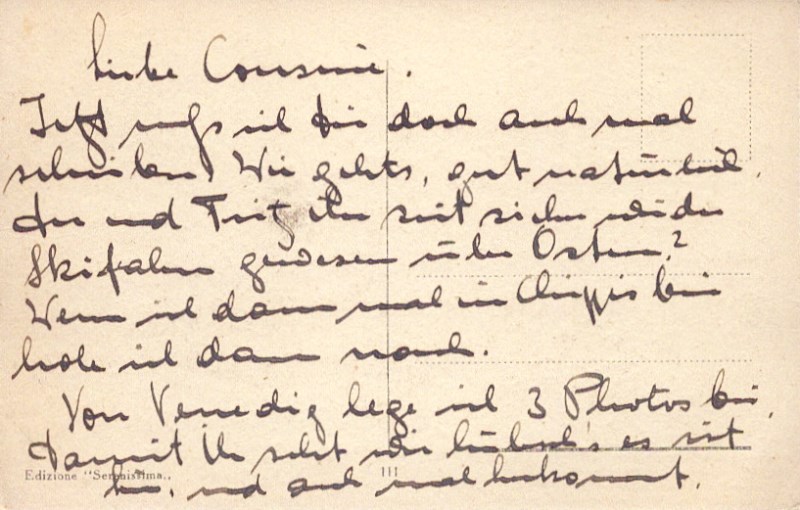 Liebe Cousine.
Jetzt muss ich Dir doch auch mal
schreiben. Wie gehts, gut natürlich.
Du und Fritz ihr seit sicher wieder
Skifahren gewesen über Ostern?
Wenn ich dann mal in Chippis bin
hole ich dann nach.
Von Venedig lege ich 3 Photos bei,
damit Ihr seht wie hübsch's es ist
hier, und auch mal
Edizione "Serenissima„
111